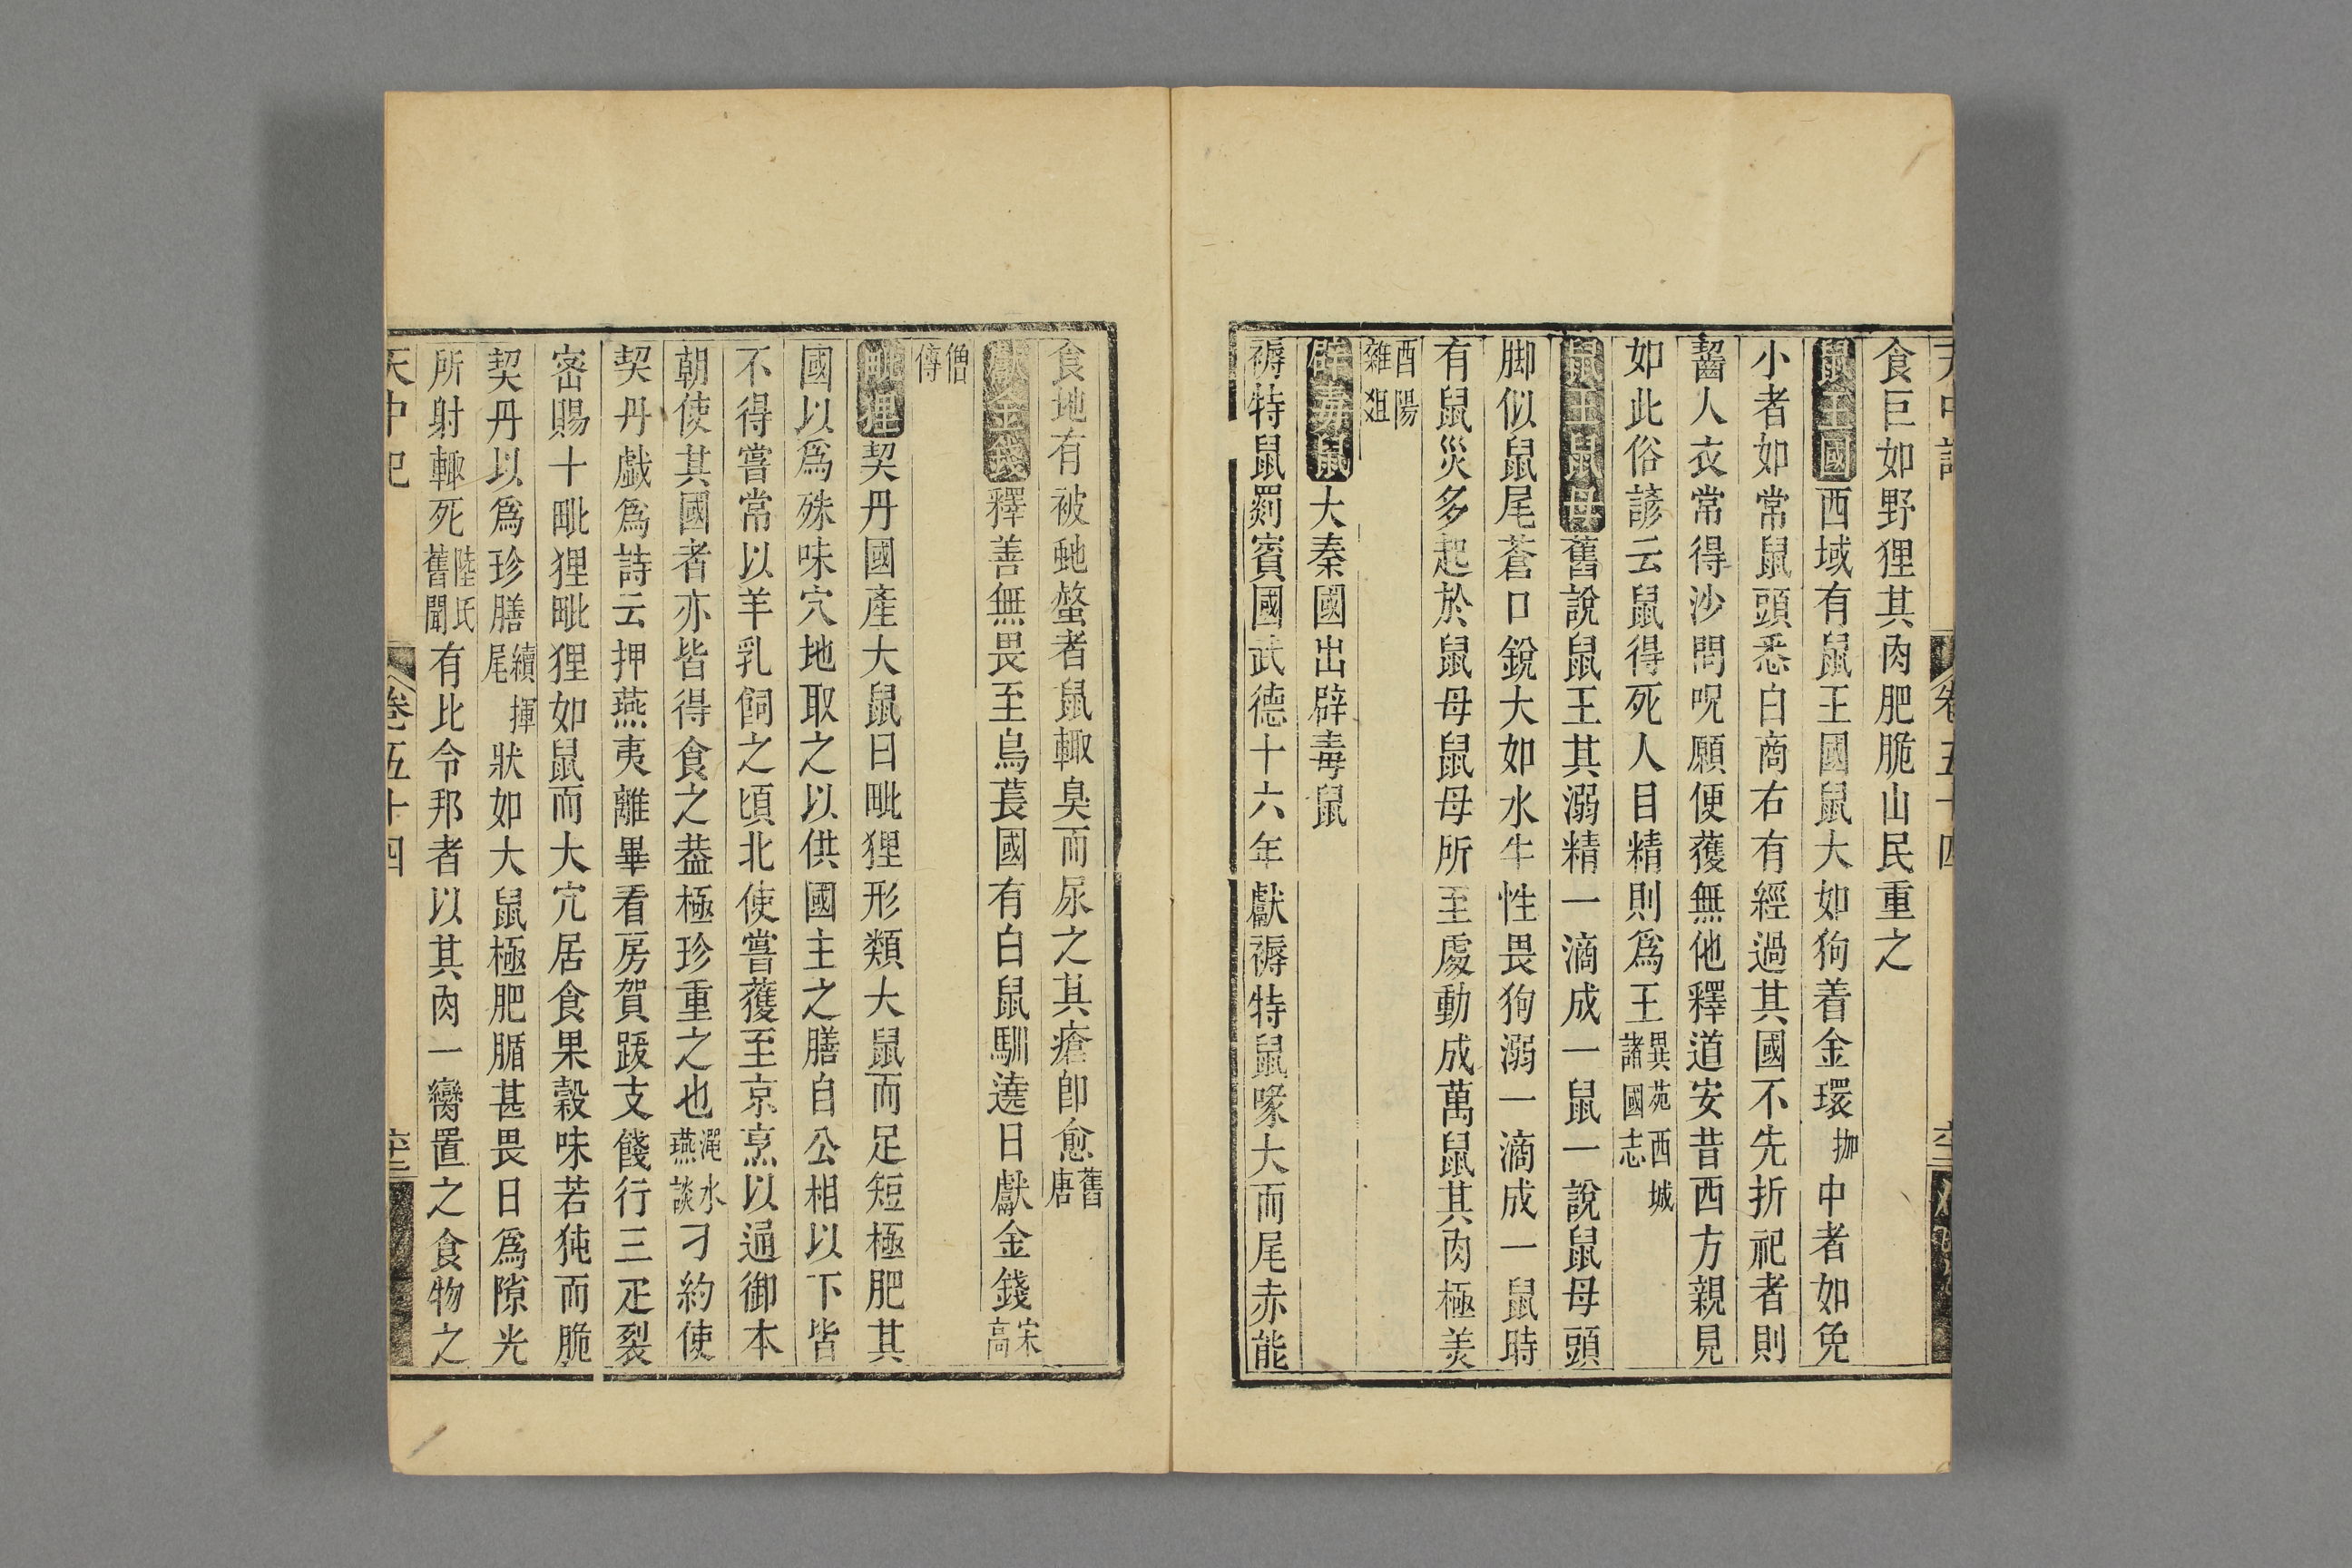 食巨如野狸其肉肥脆山民重之
鼠王國西域有鼠王國鼠大如狗着金環抛中者如免
小者如常鼠頭悉白商右有經過其國不先折祀者則
齧人衣常得沙門呪願便獲無他釋道安昔西方親見
如此俗諺云鼠得死人目精則爲王異苑西城諸國志
鼠王鼠母舊說鼠王其溺精一滴成一鼠一說鼠母頭
脚似鼠尾蒼口銳大如水牛性畏狗溺一滴成一鼠時
有鼠災多起於鼠母鼠母所至處動成萬鼠其肉極羙
酉陽雜俎
辟毒鼠大秦國出辟毒鼠
褥特鼠罽賓國武德十六年獻褥特鼠喙大而尾赤能
食地有被虵螫者鼠輙臭而尿之其瘡卽愈舊唐
獻金錢釋善無畏至烏萇國有白鼠馴遶日獻金錢宋高
僧傳
毗狸契丹國產大鼠曰毗狸形類大鼠而足短極肥其
國以爲殊味穴地取之以供國主之膳自公相以下皆
不得嘗常以羊乳飼之頃北使嘗獲至京烹以通御本
朝使其國者亦皆得食之葢極珍重之也澠水燕談刁約使
契丹戲爲詩云押燕夷離畢看房賀跋支餞行三疋裂
宻賜十毗狸毗狸如鼠而大宂居食果穀味若㹠而脆
契丹以爲珍膳續揮尾狀如大鼠極肥腯甚畏日爲隙光
所射輙死陸氏舊聞有比令邦者以其肉一臠置之食物之
天中記
卷五十四